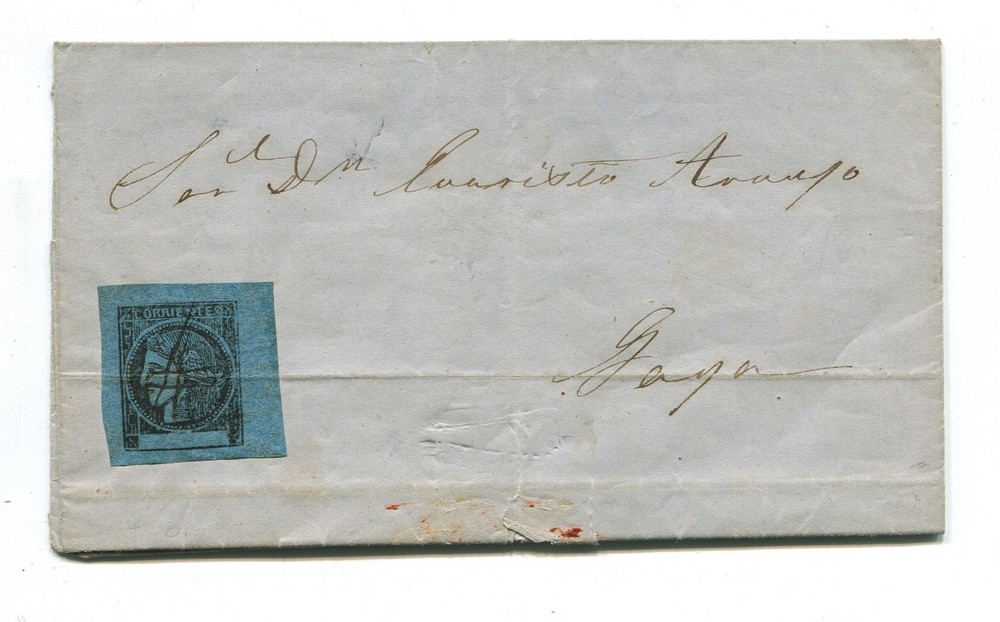 Sor d Dn Evaristo Araujo
Goya
CORRIENTES